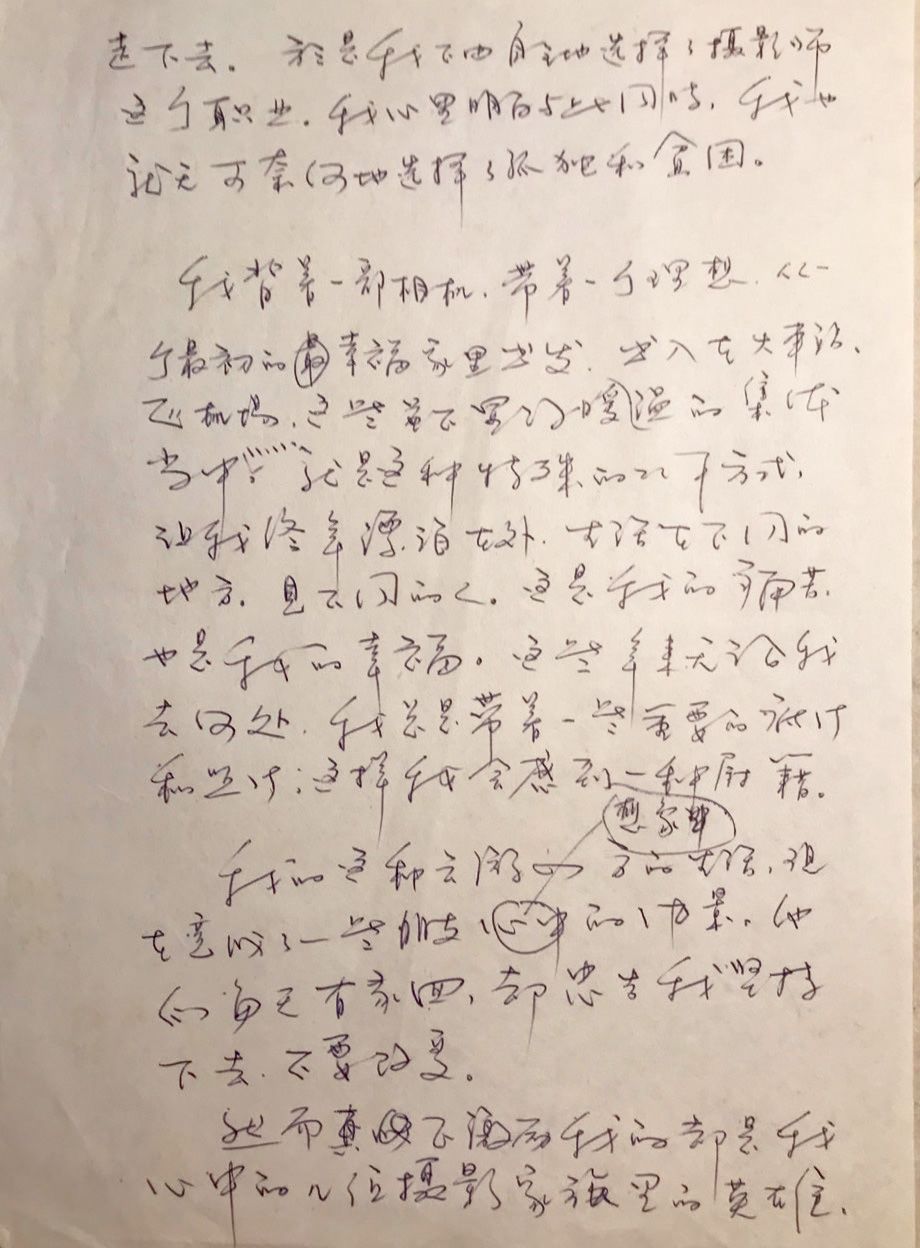 走下去。於是我不由自主地选择了摄影师
这个职业。我心里明白与此同時，我也
就无可奈何地选择了孤独和贫困。
我背着一部相机，带着一个理想，从一
个最初的最幸福家里出发，出入在火车站、
飞机場，这些并不累 暖温的集体
当中。……就是这种特殊的 方式，
让我终年漂泊在外，生活在不同的
地方，見不同的人。这是我的痛苦，
也是我的幸福。这些年来无论我
去何处，我总是带着一些重要的
和 ；这样我会感到一种慰籍。
想象中
我的这种云游 方的生活，现
在竟成了一些朋友心中的 景。他
们每天有家回，却忠告我坚持
下去，不要改变。
然而真正激励我的却是我
心中的几位摄影家族里的英雄，